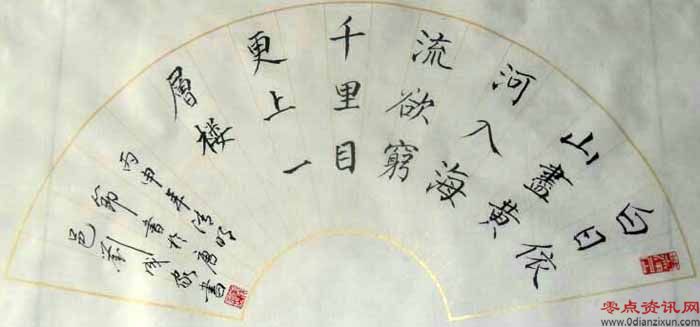 白日依
山盡黃
河入海
流欲窮
千里目
更上一
層楼
丙申年清明
節書於唐
邑劉成家書
零点资讯网
www.0dianzixun.com